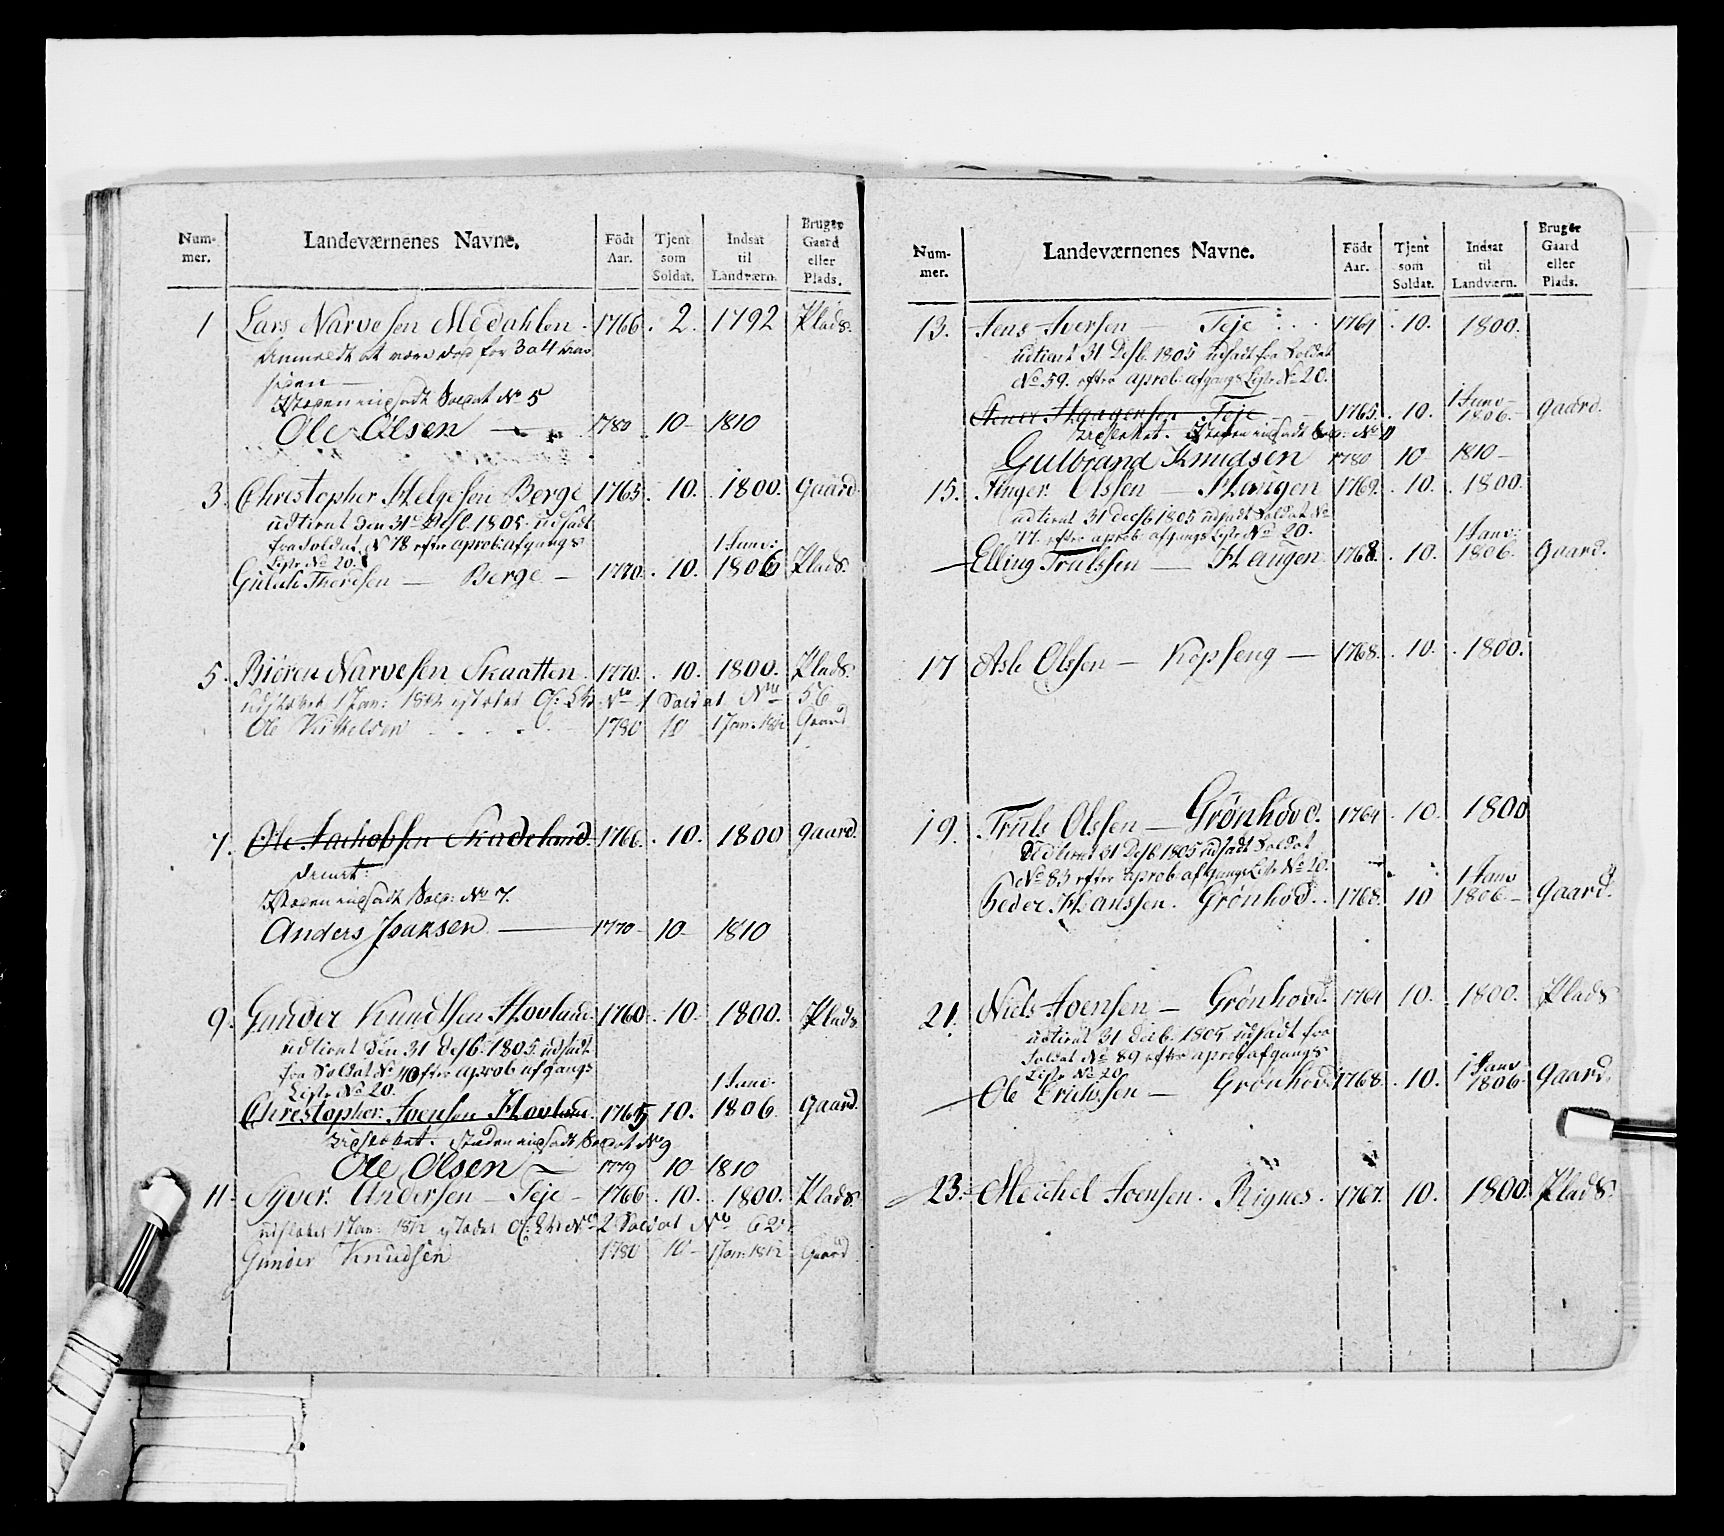 Num-
mer.
Landeværnenes Navne.
Födt
Aar.
Tjent
som
Soldat.
Indsat
til
Landværn.
Bruger
Gaard
eller
Plads.
1 Lars Narvesen Medahlen. 1766. 2. 1792 Plads.
Anmeldt at være død for 3 a 4 Aar
siden
indsadt Soldat No 5
Ole Olsen 1780 10 1810
3. Christopher Helgesen Berge 1765. 10. 1800. Gaard.
udtient den 31 Desb. 1805. udsadt
fra Soldat No 78 efter aprob: afgangs
Liste No 20.
1 Janv:
Thoresen — Berge — 1770. 10. 1806 Plads.
5. Biören Narvesen Skaatten. 1770. 10. 1800. Plads.
1 Jan: 1812 No 1 Soldat No 56
Ole Kittelsen 1780 10 1 Jan. 1812 Gaard
7. Ole Jachobsen Skadeland. 1766. 10. 1800 Gaard.
indsadt Sold: No 7.
Anders Isaksen 1770 10 1810
9. Gunder Knudtsen Hovland. 1760. 10. 1800. Plads.
udtient den 31 Desb. 1805. udsadt
fra Soldat No 40 efter aprob afgangs
Liste No 20.
1 Janv:
Christopher Joensen Hovland. 1765 10. 1806. Gaard.
udslettet. indsadt Soldat No 9
Ole Olsen 1779 10 1810
11. Syver Andersen — Teje 1766. 10. 1800. Plads.
1 Jan: 1812 No 2 Soldat No 62
Gunder Knudsen 1780 10 1 Jan. 1812 Gaard
Num-
mer.
Landeværnenes Navne.
Födt
Aar.
Tjent
som
Soldat.
Indsat
til
Landværn.
Bruger
Gaard
eller
Plads.
13. Jens Iversen — Teje 1764. 10. 1800.
udtient 31 Desb. 1805 udsadt fra Soldat
No 59. efter aprob: afgangs Liste No 20.
1 Janv
Haagensen Teje 1765. 10. 1806. Gaard.
udslettet. indsadt Sold: No 11
Gulbrand Knudsen 1780 10 1810
15. Olssen — Haugen 1769. 10. 1800.
udtient 31 decb 1805 udsadt Soldat No
77. efter aprob afgangs Liste No 20.
1 Janv:
Elling Trulssen — Haugen 1768. 10. 1806. Gaard.
17 Asle Olssen — Kopseng — 1768. 10. 1800.
19. Truls Olssen — Grønhovd. 1764 10. 1800
Udtient 31 Desb 1805 udsadt Soldat
No 83 efter aprob: afgangs Liste No 20.
1 Janv
Peder Hanssen. Grønhovd. 1768. 10 1806 — Gaard.
21. Niels Joensen — Grønhovd. 1764 10. 1800. Plads
udtient 31 decb. 1805 udsadt fra
Soldat No 89 efter aprob afgangs
Liste No 20
1 Janv
Ole Erichssen — Grønhovd. 1768. 10. 1806. Gaard.
23. Meichel Joensen. Rignes. 1767. 10. 1800. Plads.